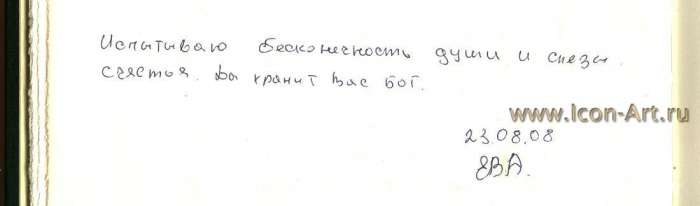 Испытываю бесконечность души и слезы
счастья. Да хранит Вас Бог.
www.Icon-Art.ru
23.08.08
ЕВА.